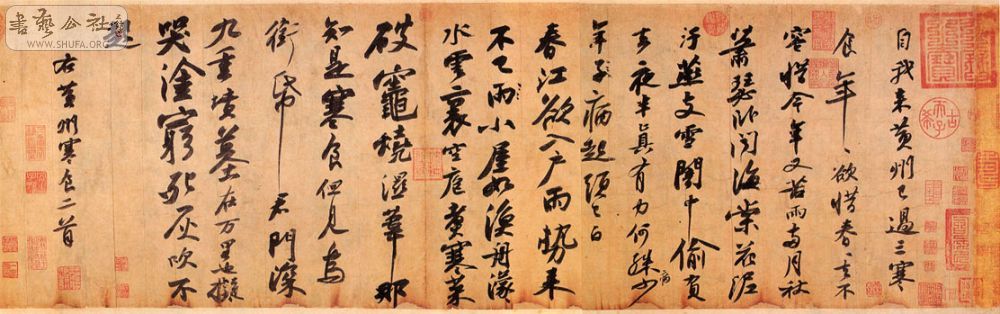 書藝公社
WWW.SHUFA.ORG
自我来黄州已過三寒
食年〻欲惜春〻去不
容惜今年又苦雨兩月秋
蕭瑟卧聞海棠花泥
汙燕支雪闇中偷負
去夜半真有力何殊少
病
年子病起頭已白
春江欲入户雨勢来
不已雨小屋如漁舟濛〻
水雲裏空庖煮寒菜
破竈燒濕葦那
知是寒食但見烏
銜帋君門深
九重墳墓在万里也擬
哭塗窮死灰吹不
起
右黄州寒食二首